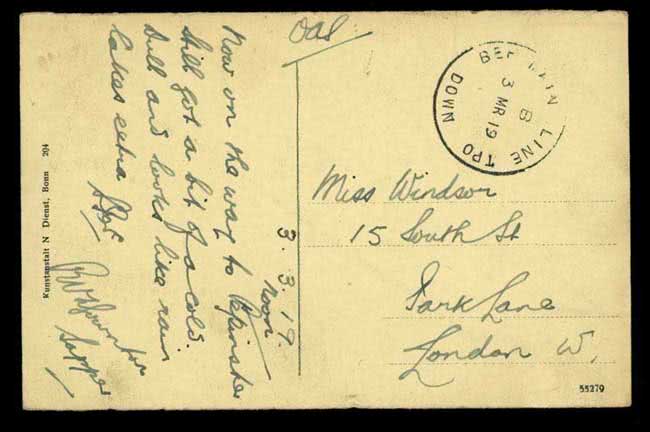 OAS
BEF MAIN LINE TPO
B
3 MR 19
DOWN
3.3.19.
noon
Now on the way to Pepinster
Still got a bit of a cold.
Dull and looks like rain
Cakes extra
Sapper
Miss Windsor
15 South St
Park Lane
London W.
Kunstanstalt N Dienst, Bonn 204
55279